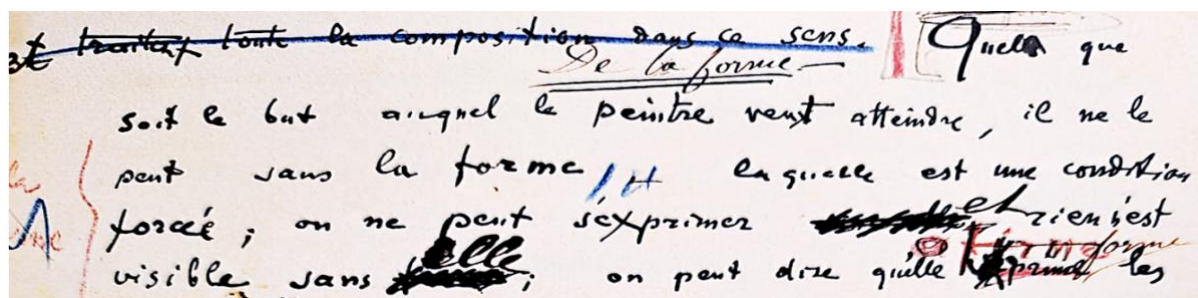 et traiter toute la composition dans ce sens. Quel que
De la forme
soit le but auquel le peintre veut atteindre, il ne le
peut sans la forme, laquelle est une condition
forcée; on ne peut s'exprimer et rien n'est
visible sans elle; on peut dire qu'elle forme les